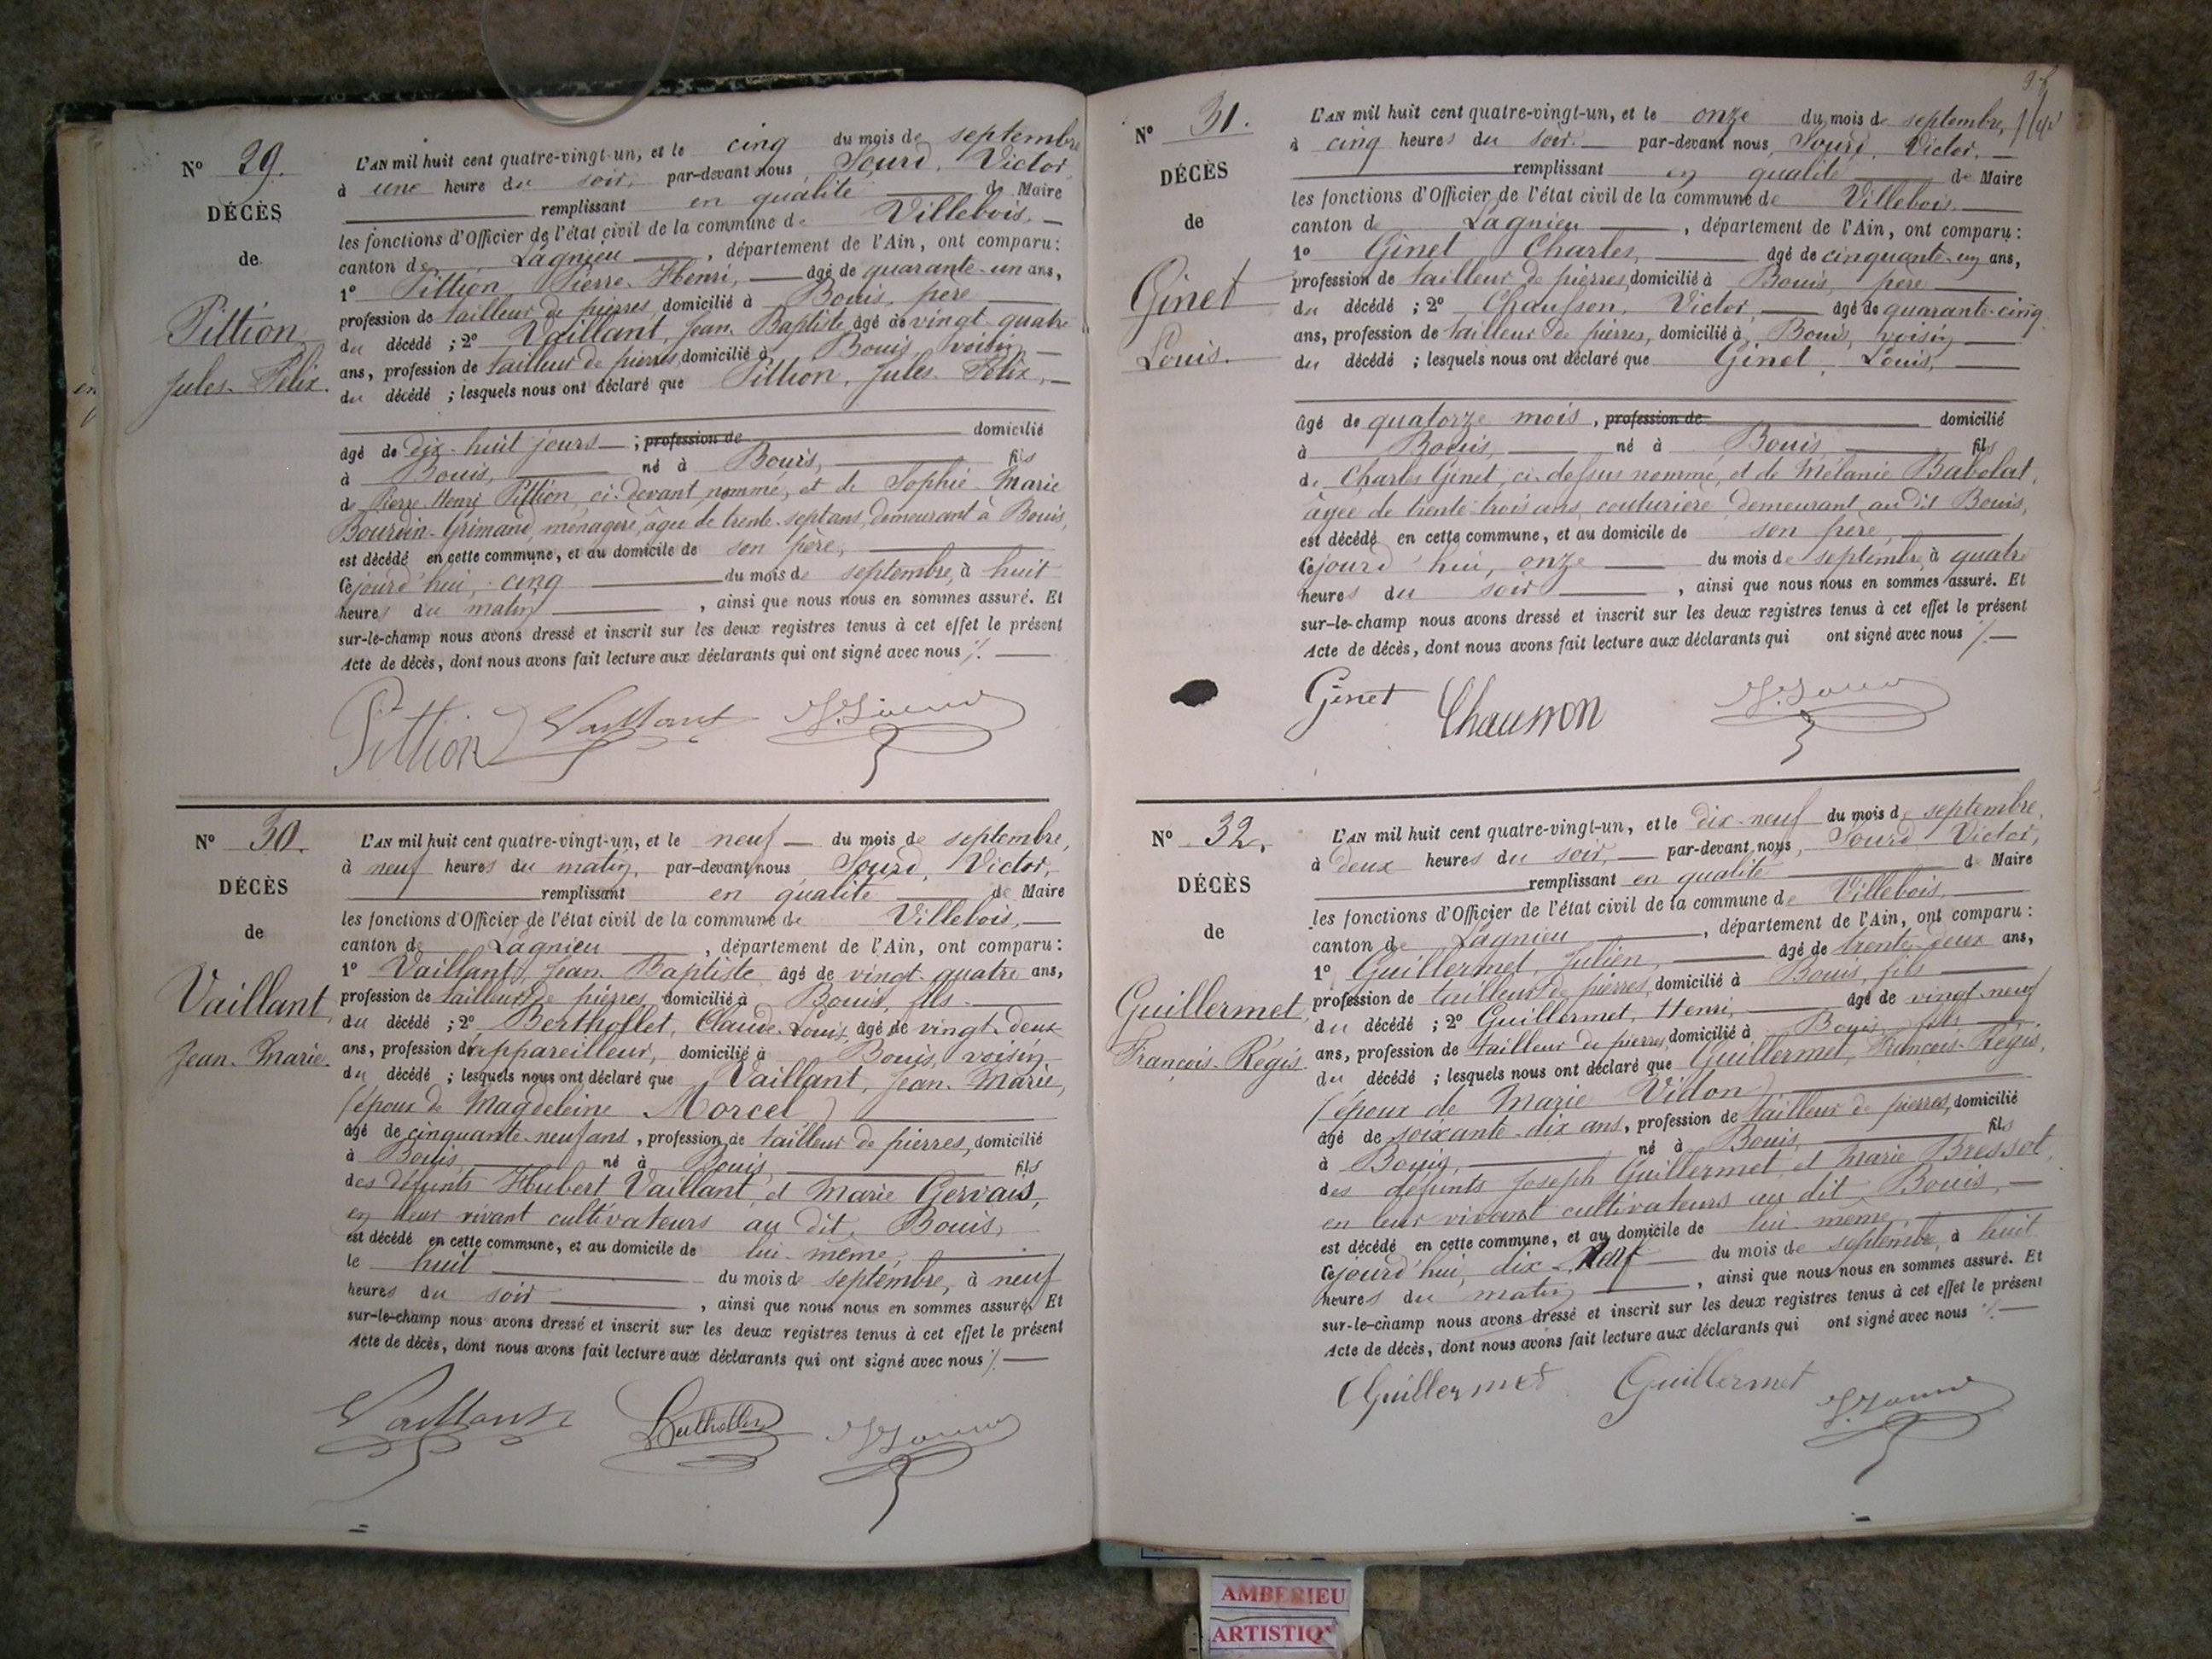 N° 29.
DÉCÈS
de
Pittion
Jules-Félix.
L'AN mil huit cent quatre-vingt-un, et le cinq du mois de septembre
à une heure du soir, par-devant nous Sourd, Victor,
remplissant en qualité de Maire
les fonctions d'Officier de l'état civil de la commune de Villebois,
canton de Lagnieu, département de l'Ain, ont comparu:
1° Pittion, Pierre-Henri, âgé de quarante-un ans,
profession de tailleur de pierres, domicilié à Bouis, père
du décédé ; 2° Vaillant, Jean-Baptiste, âgé de vingt-quatre
ans, profession de tailleur de pierres, domicilié à Bouis, voisin
du décédé ; lesquels nous ont déclaré que Pittion, Jules-Félix,
âgé de dix-huit jours, profession de domicilié
à Bouis, né à Bouis, fils
de Pierre-Henri Pittion, ci-devant nommé, et de Sophie-Marie
Bourdin-Grimand, ménagère, âgée de trente-sept ans, demeurant à Bouis,
est décédé en cette commune, et au domicile de son père,
Cejourd'hui, cinq du mois de septembre, à huit
heures du matin, ainsi que nous nous en sommes assuré. Et
sur-le-champ nous avons dressé et inscrit sur les deux registres tenus à cet effet le présent
Acte de décès, dont nous avons fait lecture aux déclarants qui ont signé avec nous ./.
Pittion Vaillant V. Sourd
N° 30.
DÉCÈS
de
Vaillant,
Jean-Marie.
L'AN mil huit cent quatre-vingt-un, et le neuf du mois de septembre,
à neuf heures du matin, par-devant nous Sourd, Victor,
remplissant en qualité de Maire
les fonctions d'Officier de l'état civil de la commune de Villebois,
canton de Lagnieu, département de l'Ain, ont comparu:
1° Vaillant, Jean-Baptiste, âgé de vingt-quatre ans,
profession de tailleur de pierres, domicilié à Bouis, fils
du décédé ; 2° Berthollet, Claude-Louis, âgé de vingt-deux
ans, profession d'appareilleur, domicilié à Bouis, voisin
du décédé ; lesquels nous ont déclaré que Vaillant, Jean-Marie,
(époux de Magdeleine Morcel)
âgé de cinquante-neuf ans, profession de tailleur de pierres, domicilié
à Bouis, né à Bouis, fils
des défunts Hubert Vaillant, et Marie Gervais,
en leur vivant cultivateurs au dit, Bouis,
est décédé en cette commune, et au domicile de lui-même,
le huit du mois de septembre, à neuf
heures du soir, ainsi que nous nous en sommes assuré. Et
sur-le-champ nous avons dressé et inscrit sur les deux registres tenus à cet effet le présent
Acte de décès, dont nous avons fait lecture aux déclarants qui ont signé avec nous ./.
Vaillant Berthollet V. Sourd
N° 31.
DÉCÈS
de
Ginet
Louis.
L'AN mil huit cent quatre-vingt-un, et le onze du mois de septembre,
à cinq heures du soir, par-devant nous, Sourd, Victor,
remplissant en qualité de Maire
les fonctions d'Officier de l'état civil de la commune de Villebois,
canton de Lagnieu, département de l'Ain, ont comparu :
1° Ginet Charles, âgé de cinquante-un ans,
profession de tailleur de pierres, domicilié à Bouis, père
du décédé ; 2° Chausson, Victor, âgé de quarante-cinq
ans, profession de tailleur de pierres, domicilié à Bouis, voisin
du décédé ; lesquels nous ont déclaré que Ginet, Louis,
âgé de quatorze mois, profession de domicilié
à Bouis, né à Bouis fils
de Charles Ginet, ci-dessus nommé, et de Mélanie Babolat,
âgée de trente-trois ans, couturière, demeurant au dit Bouis,
est décédé en cette commune, et au domicile de son père,
Cejourd'hui, onze du mois de septembre, à quatre
heures du soir, ainsi que nous nous en sommes assuré. Et
sur-le-champ nous avons dressé et inscrit sur les deux registres tenus à cet effet le présent
Acte de décès, dont nous avons fait lecture aux déclarants qui ont signé avec nous ./.
Ginet Chausson V. Sourd
N° 32.
DÉCÈS
de
Guillermet,
François-Régis.
L'AN mil huit cent quatre-vingt-un, et le dix-neuf du mois de septembre,
à deux heures du soir, par-devant nous, Sourd Victor,
remplissant en qualité de Maire
les fonctions d'Officier de l'état civil de la commune de Villebois,
canton de Lagnieu, département de l'Ain, ont comparu :
1° Guillermet, Julien, âgé de trente-deux ans,
profession de tailleur de pierres, domicilié à Bouis, fils
du décédé ; 2° Guillermet, Henri, âgé de vingt-neuf
ans, profession de tailleur de pierres, domicilié à Bouis, fils
du décédé ; lesquels nous ont déclaré que Guillermet, François-Régis,
(époux de Marie Vidon)
âgé de soixante-dix ans, profession de tailleur de pierres, domicilié
à Bouis, né à Bouis, fils
des défunts Joseph Guillermet, et Marie Bressot,
en leur vivant cultivateurs au dit, Bouis,
est décédé en cette commune, et au domicile de lui-même,
Cejourd'hui, dix-neuf du mois de septembre, à huit
heures du matin, ainsi que nous nous en sommes assuré. Et
sur-le-champ nous avons dressé et inscrit sur les deux registres tenus à cet effet le présent
Acte de décès, dont nous avons fait lecture aux déclarants qui ont signé avec nous ./.
Guillermet Guillermet V. Sourd
AMBERIEU
ARTISTIQ